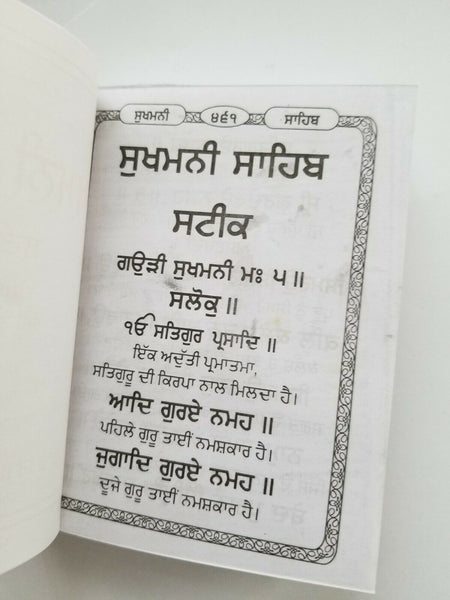 ਸੁਖਮਨੀ ੪੬੧ ਸਾਹਿਬ
ਸੁਖਮਨੀ ਸਾਹਿਬ
ਸਟੀਕ
ਗਉੜੀ ਸੁਖਮਨੀ ਮਃ ੫ ॥
ਸਲੋਕੁ ॥
ੴ ਸਤਿਗੁਰ ਪ੍ਰਸਾਦਿ ॥
ਇੱਕ ਅਦੁੱਤੀ ਪ੍ਰਮਾਤਮਾ,
ਸਤਿਗੁਰੂ ਦੀ ਕਿਰਪਾ ਨਾਲ ਮਿਲਦਾ ਹੈ।
ਆਦਿ ਗੁਰਏ ਨਮਹ ॥
ਪਹਿਲੇ ਗੁਰੂ ਤਾਈਂ ਨਮਸ਼ਕਾਰ ਹੈ।
ਜੁਗਾਦਿ ਗੁਰਏ ਨਮਹ ॥
ਦੂਜੇ ਗੁਰੂ ਤਾਈਂ ਨਮਸ਼ਕਾਰ ਹੈ।